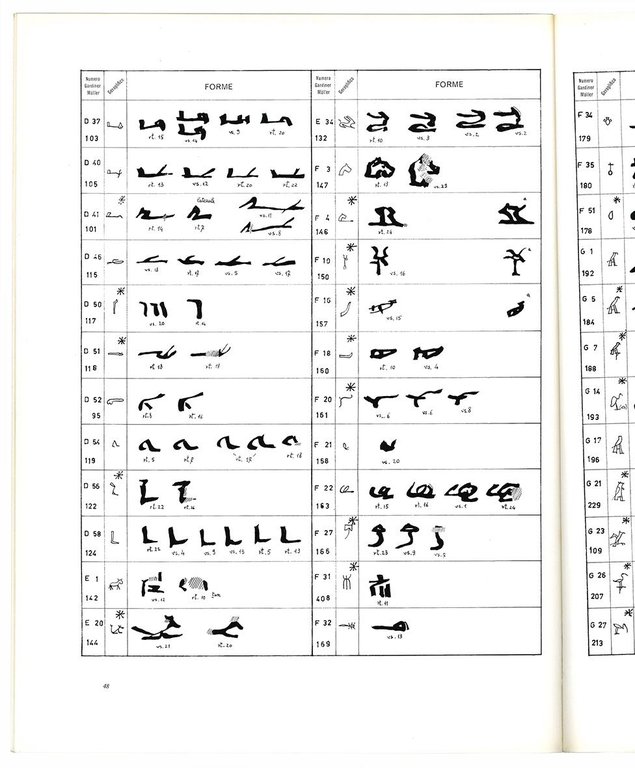 Numero Gardiner Möller Geroglifico FORME
D 37
103
rt. 15 vs. 14 vs. 9 rt. 20
D 40
105
rt. 13 vs. 12 rt. 20 rt. 22
D 41
101
rt. 14 rt. 7 vs. 11 vs. 8
D 46
115
vs. 5 vs. 17
D 50
117
vs. 20 rt. 14
D 51
118
rt. 13
D 52
95
rt. 3 rt. 16
D 54
119
rt. 5 rt. 18
D 56
122
rt. 22 rt. 16
D 58
124
rt. 21 vs. 4 vs. 9 vs. 13 rt. 5 rt. 13
E 1
142
vs. 12 rt. 10
E 20
144
vs. 21 rt. 20
Numero Gardiner Möller Geroglifico FORME
E 34
132
rt. 10 vs. 3 vs. 2 vs. 2
F 3
147
rt. 13 vs. 23
F 4
146
rt. 26
F 10
150
vs. 16
F 16
157
vs. 15
F 18
160
rt. 10 vs. 4
F 20
161
vs. 6 vs. 6 vs. 8
F 21
158
vs. 20
F 22
163
rt. 15 rt. 16 vs. 1 rt. 24
F 27
166
rt. 23 vs. 9 vs. 5
F 31
408
rt. 11
F 32
169
vs. 13
48
Numero Gardiner Möller Geroglifico
F 34
179
F 35
180
F 51
178
G 1
192
G 5
184
G 7
188
G 14
193
G 17
196
G 21
229
G 23
109
G 26
207
G 27
213